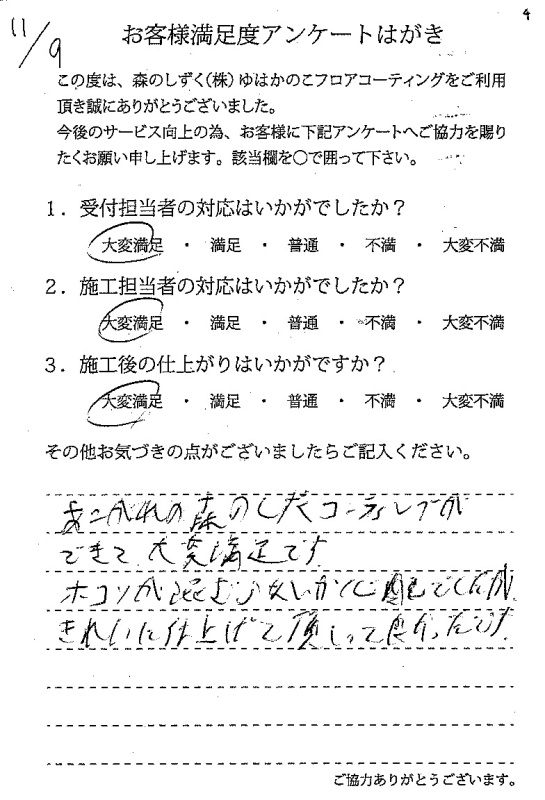 11/9
4
お客様満足度アンケートはがき
この度は、森のしずく(株)ゆはかのこフロアコーティングをご利用
頂き誠にありがとうございました。
今後のサービス向上の為、お客様に下記アンケートへご協力を賜り
たくお願い申し上げます。該当欄を〇で囲って下さい。
1．受付担当者の対応はいかがでしたか？
大変満足 ・ 満足 ・ 普通 ・ 不満 ・ 大変不満
2．施工担当者の対応はいかがでしたか？
大変満足 ・ 満足 ・ 普通 ・ 不満 ・ 大変不満
3．施工後の仕上がりはいかがですか？
大変満足 ・ 満足 ・ 普通 ・ 不満 ・ 大変不満
その他お気づきの点がございましたらご記入ください。
あこがれの森のしずくコーティングが
できて、大変満足です
ホコリが混ざらないか心配でしたが
きれいに仕上げて頂しって良かったです。
ご協力ありがとうございます。